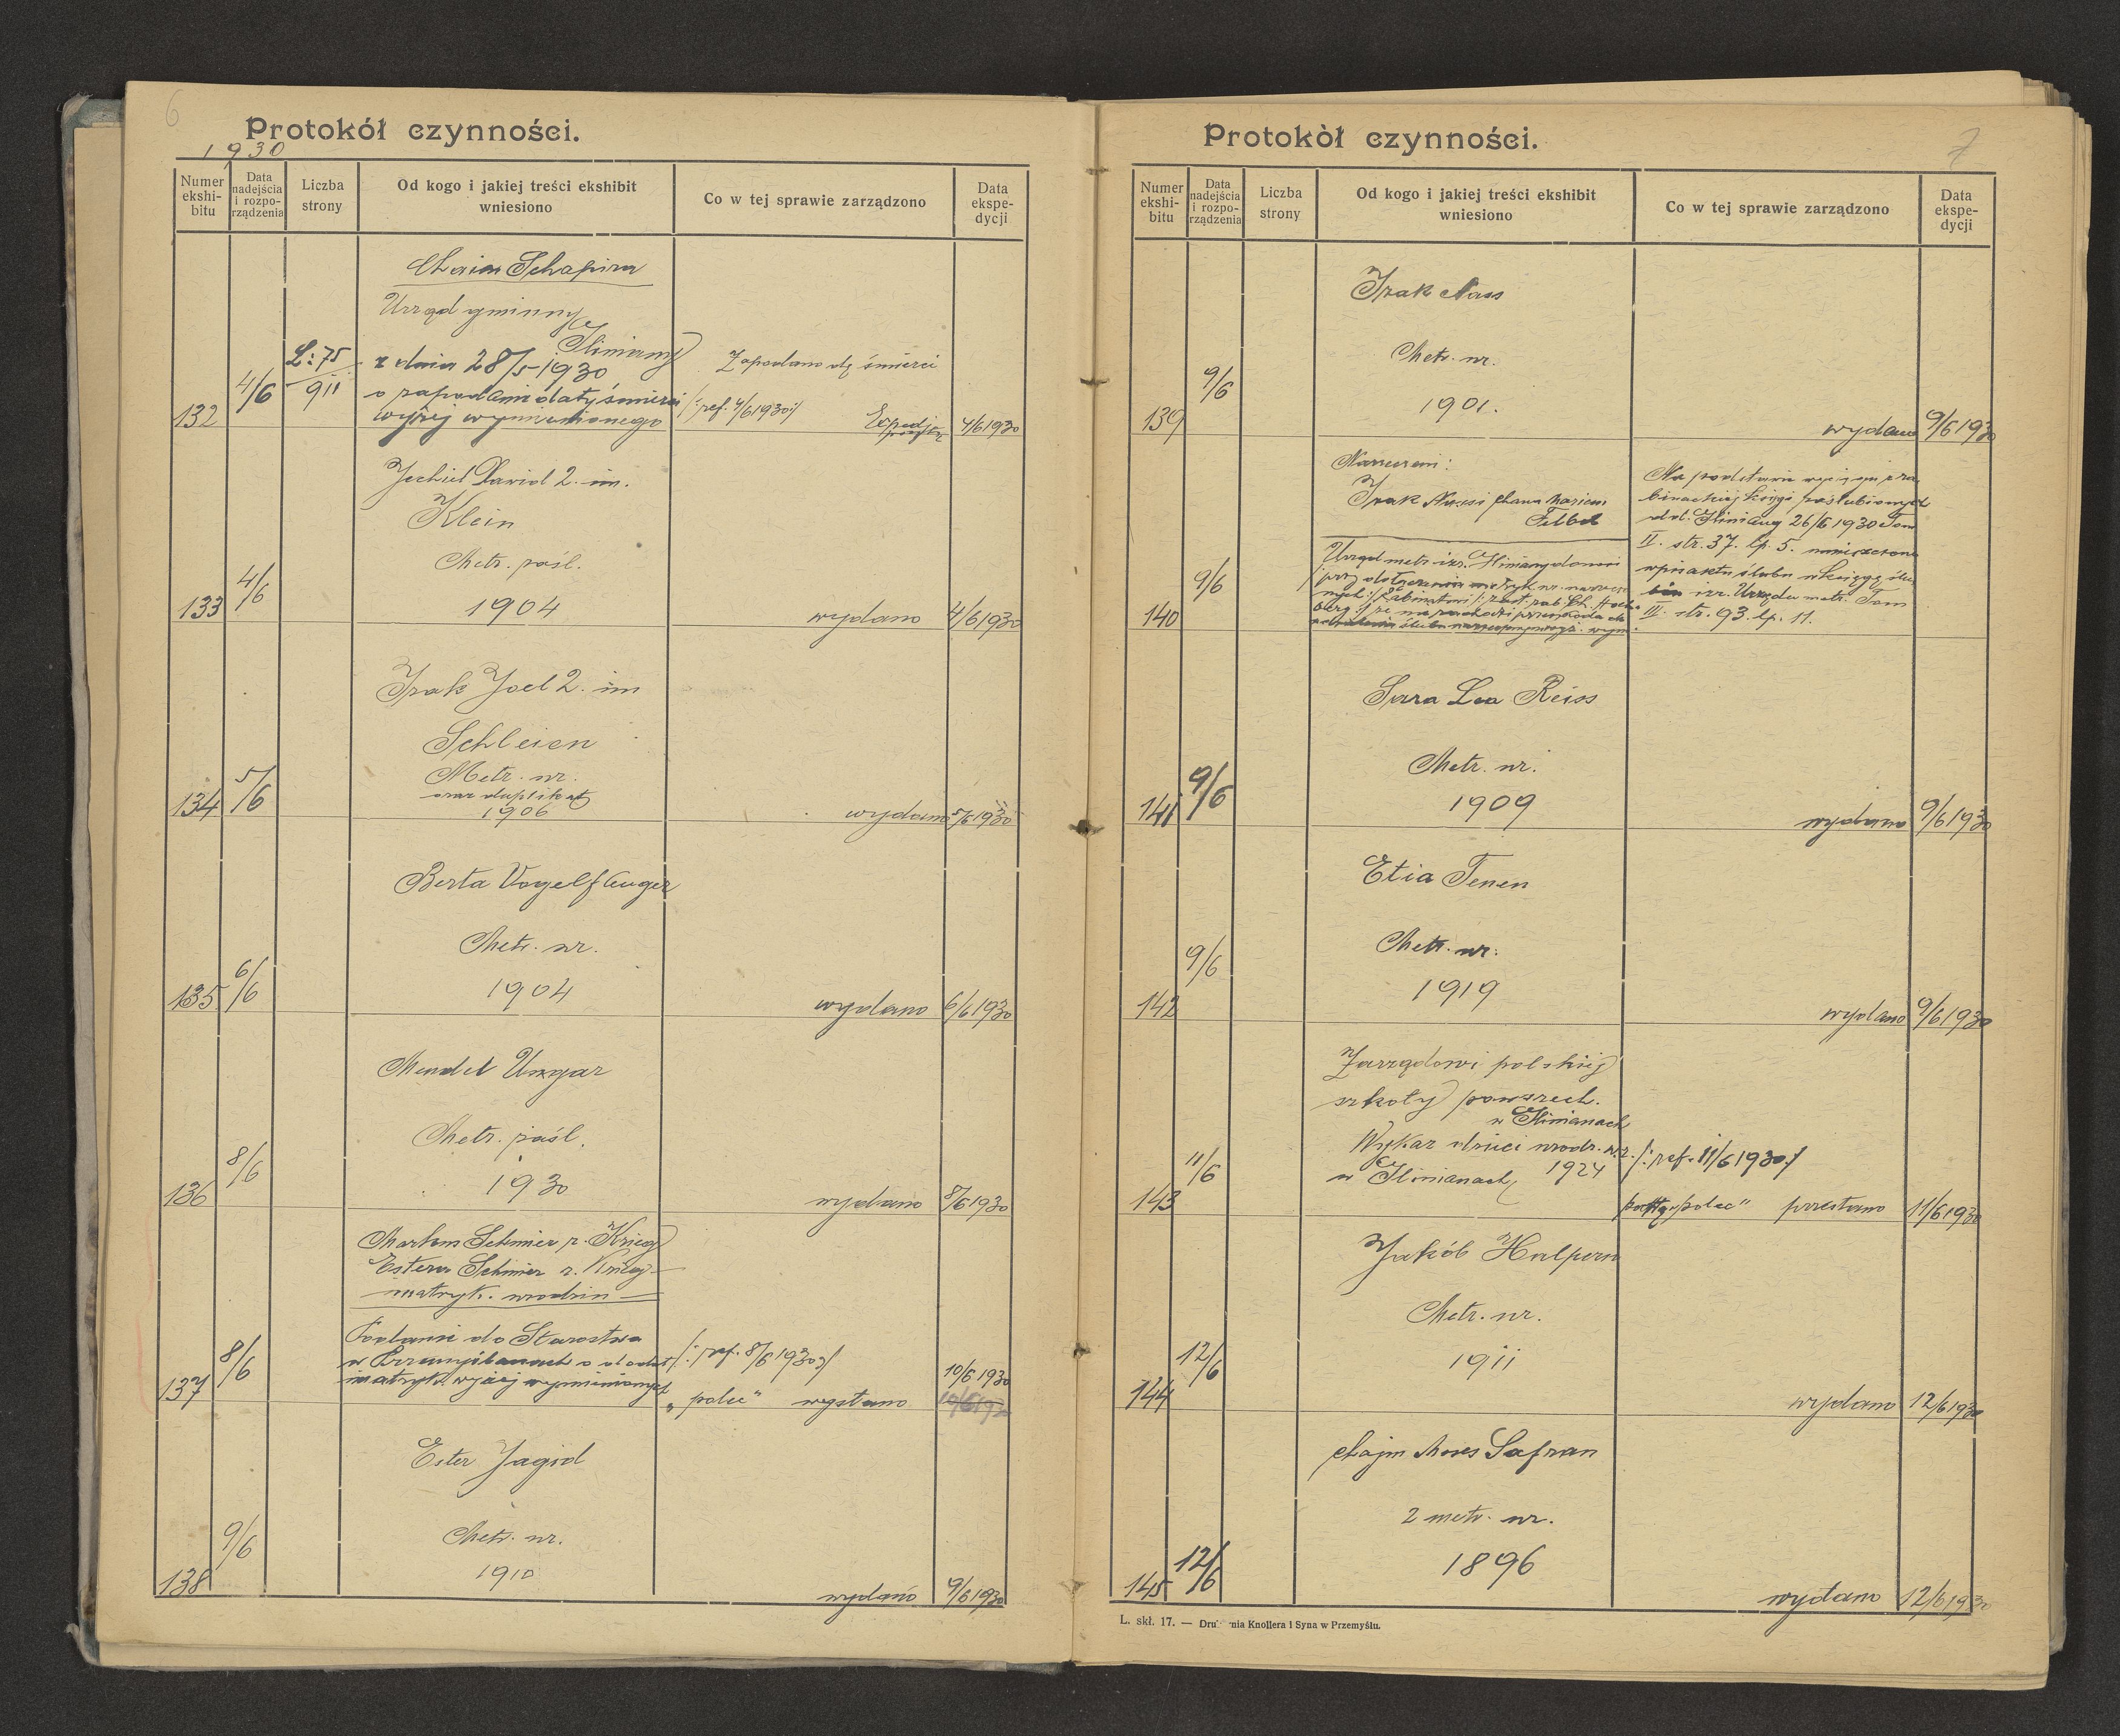 6
Protokół czynności.
1930
Numer ekshi-bitu
Data nadejścia i rozpo-rządzenia
Liczba strony
Od kogo i jakiej treści ekshibit wniesiono
Co w tej sprawie zarządzono
Data ekspe-dycji
Chaim Schapira
Urząd gminny
Gliniany
132
4/6
L: 75
911
z dnia 28/5 1930
o zapodanie daty śmierci
wyżej wymienionego
Zapodano dtę śmierci
/: ref. 4/6 1930 :/
4/6 1930
Jechiel Dawid 2. im.
Klein
Metr. pośl.
133
4/6
1904
wydano
4/6 1930
Izak Joel 2. im
Schleien
Metr. ur.
oraz duplikat
134
5/6
1906
wydano
5/6 1930
Berta Vogelfänger
Metr. ur.
135
6/6
1904
wydano
6/6 1930
Mendel Ungar
Metr. pośl.
136
8/6
1930
wydano
8/6 1930
Markus Schmier r. Krieg
Estera Schmier r. Krieg
matryk. urodzin
Podanie do Starostwa
w Przemyślanach o dodat
matryk. wyżej wymienionych
137
8/6
/: ref. 8/6 1930 :/
10/6 1930
„polec" wysłano
10/6 1930
Ester Jagid
Metr. ur.
138
9/6
1910
wydano
9/6 1930
7
Protokòł czynności.
Numer ekshi-bitu
Data nadejścia i rozpo-rządzenia
Liczba strony
Od kogo i jakiej treści ekshibit wniesiono
Co w tej sprawie zarządzono
Data ekspe-dycji
Izak Nass
Metr. ur.
139
9/6
1901.
wydano
9/6 1930
Narzeczeni:
Izak Nass i Chana
Felbel
Urząd metr. izr. Gliniany donosi
140
9/6
Na podstawie
binackiej księgi poślubionych
Gliniany 26/6 1930 Tom
II. str. 37. lp. 5. umieszczono
wpis aktu ślubu w księgę ślu
bów izr. Urzędu metr. Tom
III. str. 93. lp. 11.
Sara Lea Reiss
Metr. ur.
141
9/6
1909
wydano
9/6 1930
Etia Tenen
Metr. ur.
142
9/6
1919
wydano
9/6 1930
Zarządowi polskiej
szkoły powszech.
w Glinianach
Wykaz dzieci urodz. w r.
w Glinianach 1924
/: ref. 11/6 1930 :/
143
11/6
„polec" przesłano
11/6 1930
Jakób Halpern
Metr. ur.
144
12/6
1911
wydano
12/6 1930
Chajm Moses Safran
2 metr. ur.
145
12/6
1896
wydano
12/6 1930
L. skł. 17. — Dru nia Knollera i Syna w Przemyślu.